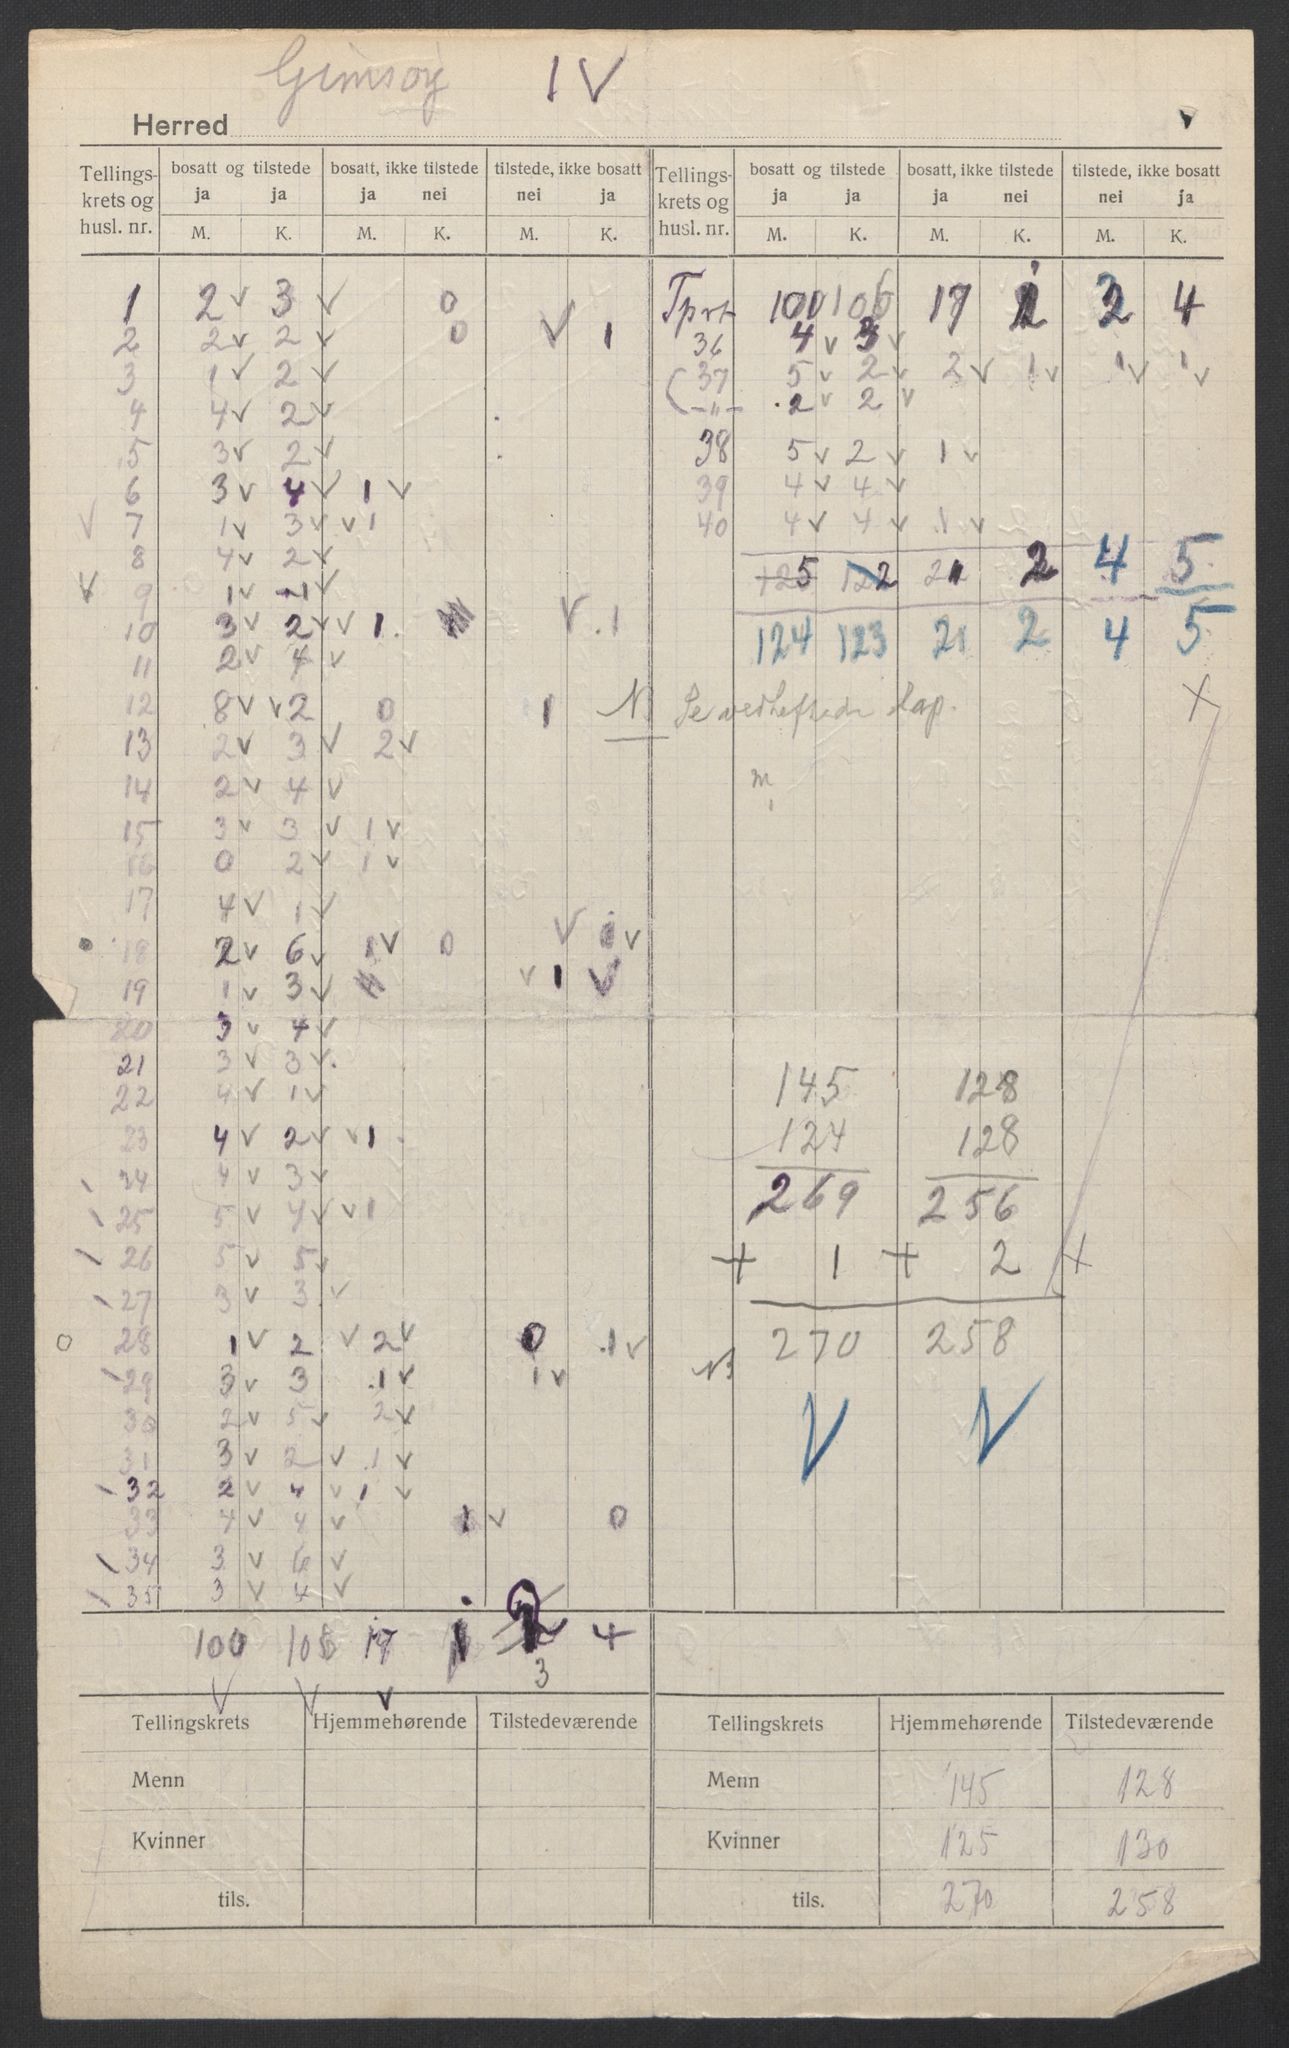 Gimsøy IV
Herred
Tellings-krets og husl. nr. | bosatt og tilstede ja ja M. K. | bosatt, ikke tilstede ja nei M. K. | tilstede, ikke bosatt nei ja M. K. | Tellings-krets og husl. nr. | bosatt og tilstede ja ja M. K. | bosatt, ikke tilstede ja nei M. K. | tilstede, ikke bosatt nei ja M. K.
1 2 v 3 v 0
2 2 v 2 v 0 V 1
3 1 v 2 v
4 4 v 2 v
5 3 v 2 v
6 3 v 4 v 1 v
v 7 1 v 3 v v 1
8 4 v 2 v
v 9 1 v 1 v
10 3 v 2 v v 1. V .1
11 2 v 4 v
12 8 v v 2 0 1
13 2 v 3 v 2 v
14 2 v 4 v
15 3 v 3 v 1 v
16 0 2 v 1 v
17 4 v 1 v
18 2 v 6 v 1 v 0 V 1 v
19 1 v 3 v v 1 V
20 3 v 4 v
21 3 v 3 v
22 4 v 1 v
23 4 v 2 v v 1
24 4 v 3 v
25 5 v 4 v v 1
26 5 v 5 v
27 3 v 3 v
0 28 1 v 2 v 2 v 0 .1 v
29 3 v 3 .1 v 1 v
30 2 v 5 v 2 v
31 3 v 2 v 1 v
32 2 v 4 v 1 v
33 4 v 4 v 1 v 0
34 3 v 6 v
35 3 v 4 v
100 106 17 1 3 4
Tprt 100 106 17 1 3 4
36 4 v 3 v
37 5 v 2 v 2 v 1 v 1 v 1 v
-"- 2 v 2 v
38 5 v 2 v 1 v
39 4 v 4 v
40 4 v 4 v 1 v
125 122 21 2 4 5
124 123 21 2 4 5
N3 Se vedheftede lap. +
m
1
145 128
124 128
269 256
+ 1 + 2 +
N3 270 258
V V
Tellingskrets | Hjemmehørende | Tilstedeværende | Tellingskrets | Hjemmehørende | Tilstedeværende
Menn | Menn 145 128
Kvinner | Kvinner 125 130
tils. | tils. 270 258